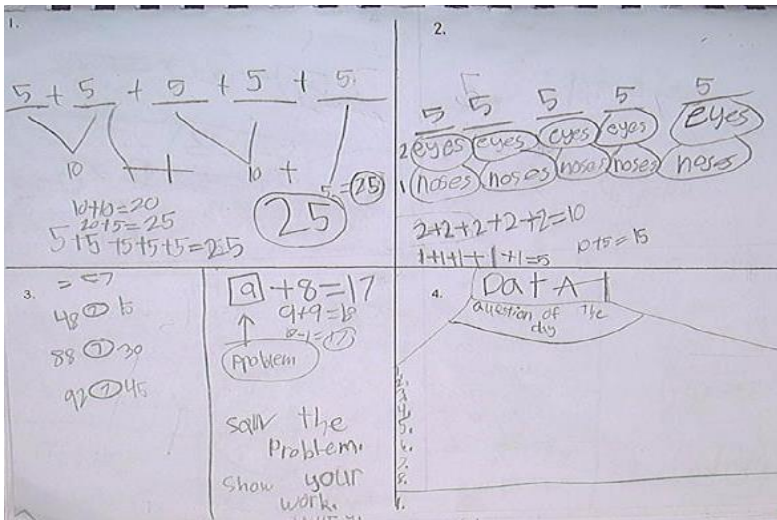 1.
5 + 5 + 5 + 5 + 5
10 + 10 + 5 = 25
10+10=20
20+5=25
25
5+5+5+5+5=25
2.
5 5 5 5 5
2 eyes eyes eyes eyes eyes
1 noses noses noses noses noses
2+2+2+2+2=10
1+1+1+1+1=5
10+5=15
3.
48 > 15
88 > 30
92 > 45
9 +8=17
9+9=18
18-1=17
Problem
the
Problem.
Show your
work.
4.
Data
question of the
day
2.
3.
4.
5.
6.
7.
8.